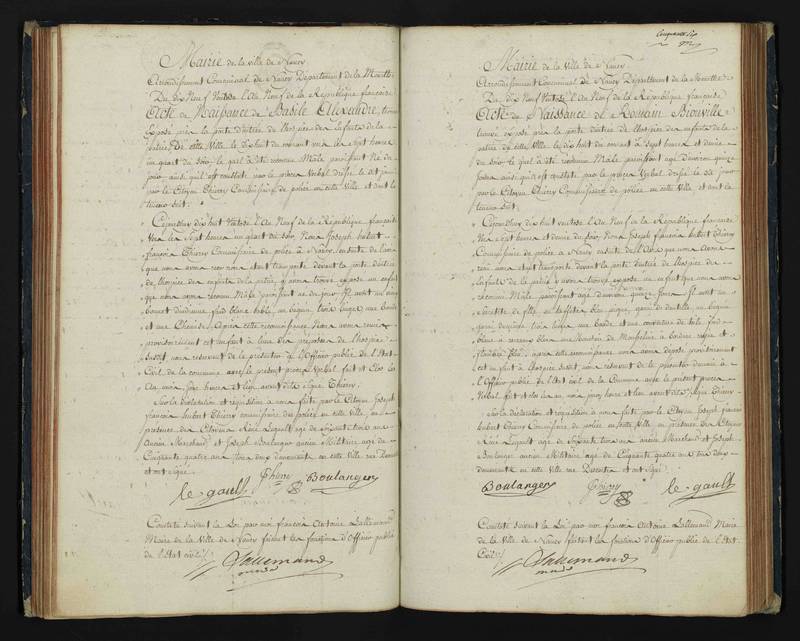 Mairie de la ville de Nancy
Arrondissement Communal de Nancy Département de la Meurthe
Du dix Neuf Ventose l'An Neuf de la République française
Acte de Naissance de Basile Alexandre, trouvé
exposé près la porte d'entrée de l'hospice des enfants de la
patrie de cette Ville le dix huit du courant à Sept heures
un quart du soir, le quel a été reconnu Mâle paroissant Né du
jour ainsi qu'il est constaté par le procès Verbal dressé le dit jour
par le Citoyen Thiery Commissaire de police en cette Ville et dont la
teneur suit.
Cejourd'huy dix huit Ventose l'An Neuf de la République française
vers les Sept heures un quart du soir, Nous Joseph hubert
françois Thiery Commissaire de police à Nancy, ensuite de l'avis
que nous avons reçu nous étant transporté devant la porte d'entrée
de l'hospice des enfants de la patrie, y avons trouvé exposé un enfant
que nous avons reconnu Mâle paroissant né du jour. Il avoit un
bonnet d'indienne fond blanc, un béguin, trois linges, une bande
et une Chemise. Après cette reconnoissance Nous avons remis
provisoirement cet enfant à l'une des préposées de l'hospice
susdit, nous reservant de le présenter à l'Officier public de l'état
Civil de la commune avec le présent procès Verbal, fait et clos les
An, mois, jour, heure et lieu avant dits. Signé Thiery.
Sur la déclaration et réquisition à nous faite par le Citoyen Joseph
françois hubert Thiery commissaire de police en cette ville, en
présence des Citoyens René Legault agé de soixante trois ans
Ancien Marchand et Joseph Boulanger ancien Militaire agé de
Cinquante quatre ans tous deux demeurants en cette Ville rue
et ont signé.
le gault Thiery Boulanger
Constaté suivant la Loi par moi françois Antoine Lallemand
Maire de la Ville de Nancy faisant les fonctions d'Officier public
de l'état civil.
Lallemand
maire
Cinquante six
Mairie de la Ville de Nancy
Arrondissement Communal de Nancy Département de la Meurthe
Du dix Neuf Ventose l'An Neuf de la République française
Acte de Naissance de Romain Biouville
trouvé exposé près la porte d'entrée de l'hospice des enfants de la
patrie de cette Ville le dix huit du courant à Sept heures et demie
du soir, le quel a été reconnu Mâle paroissant agé d'environ quinze
jours ainsi qu'il est constaté par le procès Verbal dressé le dit jour
par le Citoyen Thiery Commissaire de police en cette Ville et dont la
teneur suit.
Cejourd'huy dix huit ventose l'An Neuf de la République française
vers sept heures et demie du soir, Nous Joseph françois hubert Thiery
Commissaire de police à Nancy ensuite de l'Avis que nous avons
reçu nous étant transporté devant la porte d'entrée de l'hospice des
enfants de la patrie y avons trouvé exposé un enfant que nous avons
reconnu Mâle paroissant agé d'environ quinze Jours. Il avoit un
garni de dentelle, un béguin
garni trois linges une bande et une couverture de toile fond
blanc un mouchoir de Mousseline à bordure
bleu, après cette reconnoissance nous avons déposé provisoirement
cet enfant à l'hospice susdit, nous reservant de le présenter demain à
l'Officier public de l'état civil de la Commune avec le présent procès
Verbal, fait et clos les an, mois, jour, heure et lieu avant dits. Signé Thiery
Sur la déclaration et réquisition à nous faite par le Citoyen Joseph françois
hubert Thiery Commissaire de police en cette Ville en présence des Citoyens
René Legault agé de soixante trois ans ancien Marchand et Joseph
Boulanger ancien Militaire agé de Cinquante quatre ans tous deux
demeurants en cette Ville rue et ont signé.
Boulanger Thiery le gault
Constaté suivant la Loi par moi françois Antoine Lallemand Maire
de la Ville de Nancy faisant les fonctions d'Officier public de l'état
Civil.
Lallemand
maire